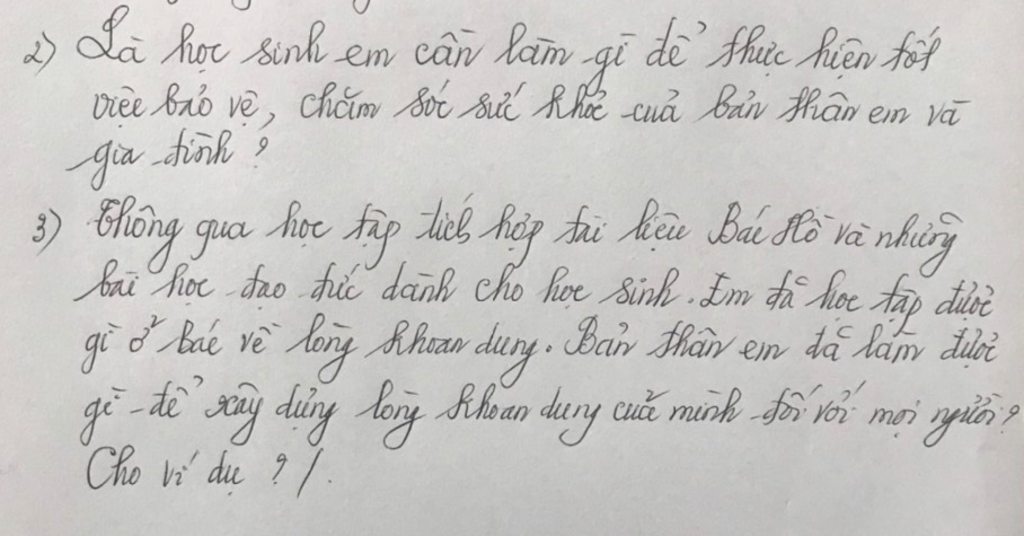 2) Là học sinh em cần làm gì để thực hiện tốt
việc bảo vệ, chăm sóc sức khỏe của bản thân em và
gia đình ?
3) Thông qua học tập tích hợp tài liệu Bác Hồ và những
bài học đạo đức dành cho học sinh. Em đã học tập được
gì ở bác về lòng khoan dung. Bản thân em đã làm được
gì để xây dựng lòng khoan dung của mình đối với mọi người?
Cho ví dụ ? /.